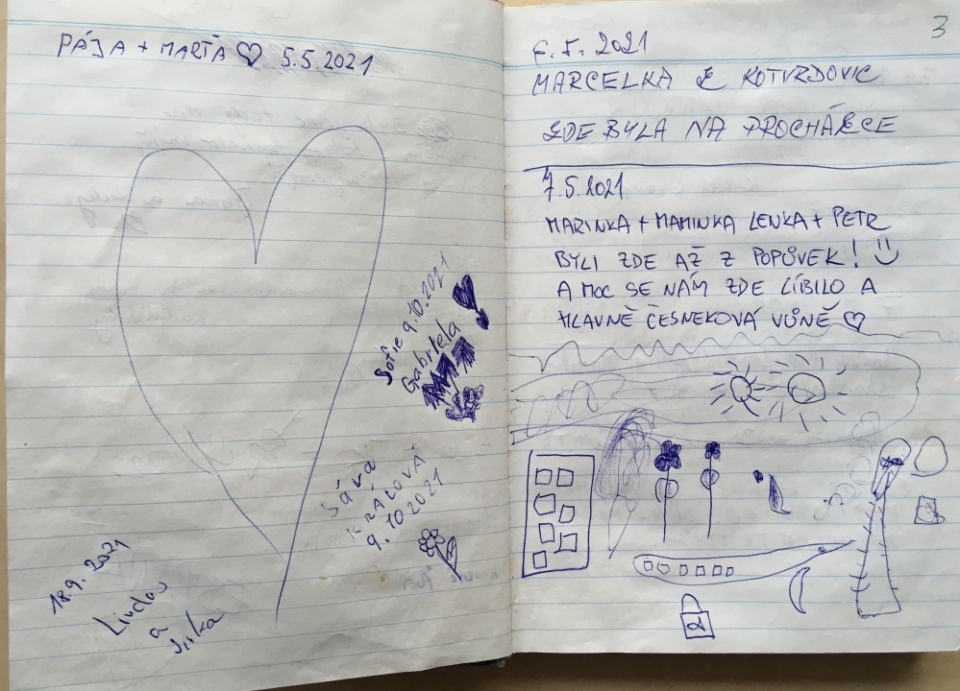 PÁJA + MARŤA ♡ 5.5.2021
Sofie 9.10.2021
Gabriela
Sára
KRÁLOVÁ
9.10 2021
18.9. 2021
a
Jirka
3
2021
MARCELKA Z KOTVRDOVIC
ZDE BYLA NA PROCHÁZCE
7.5.2021
MARINKA + MAMINKA LENKA + PETR
BYLI ZDE AŽ Z POPŮVEK! :)
A MOC SE NÁM ZDE LÍBILO A
HLAVNĚ ČESNEKOVÁ VŮNĚ ♡